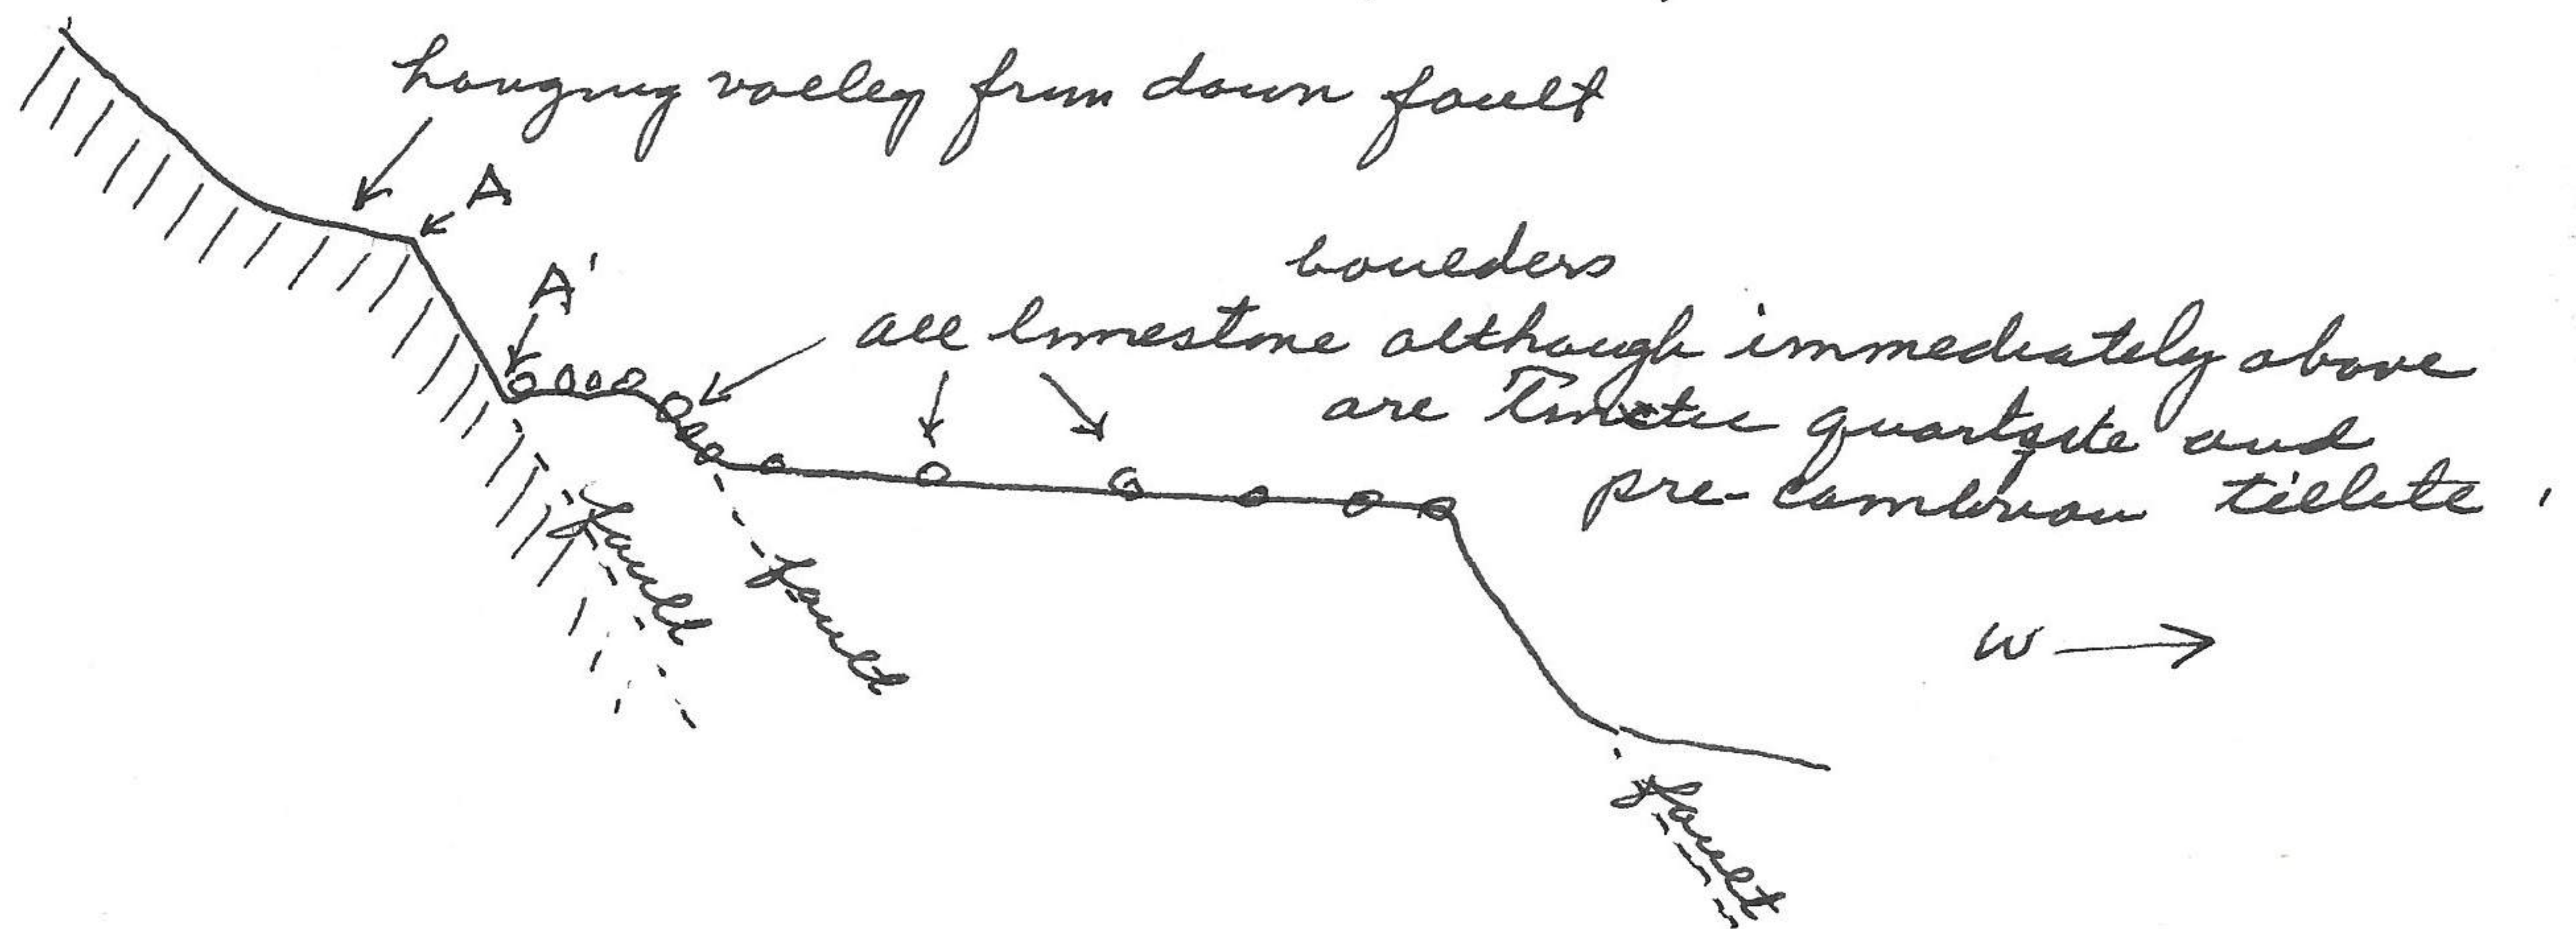 hanging valley from down fault
A
A'
boulders
all limestone although immediately above
are Tintic quartzite and
pre-cambrian tillite,
fault
fault
W
fault